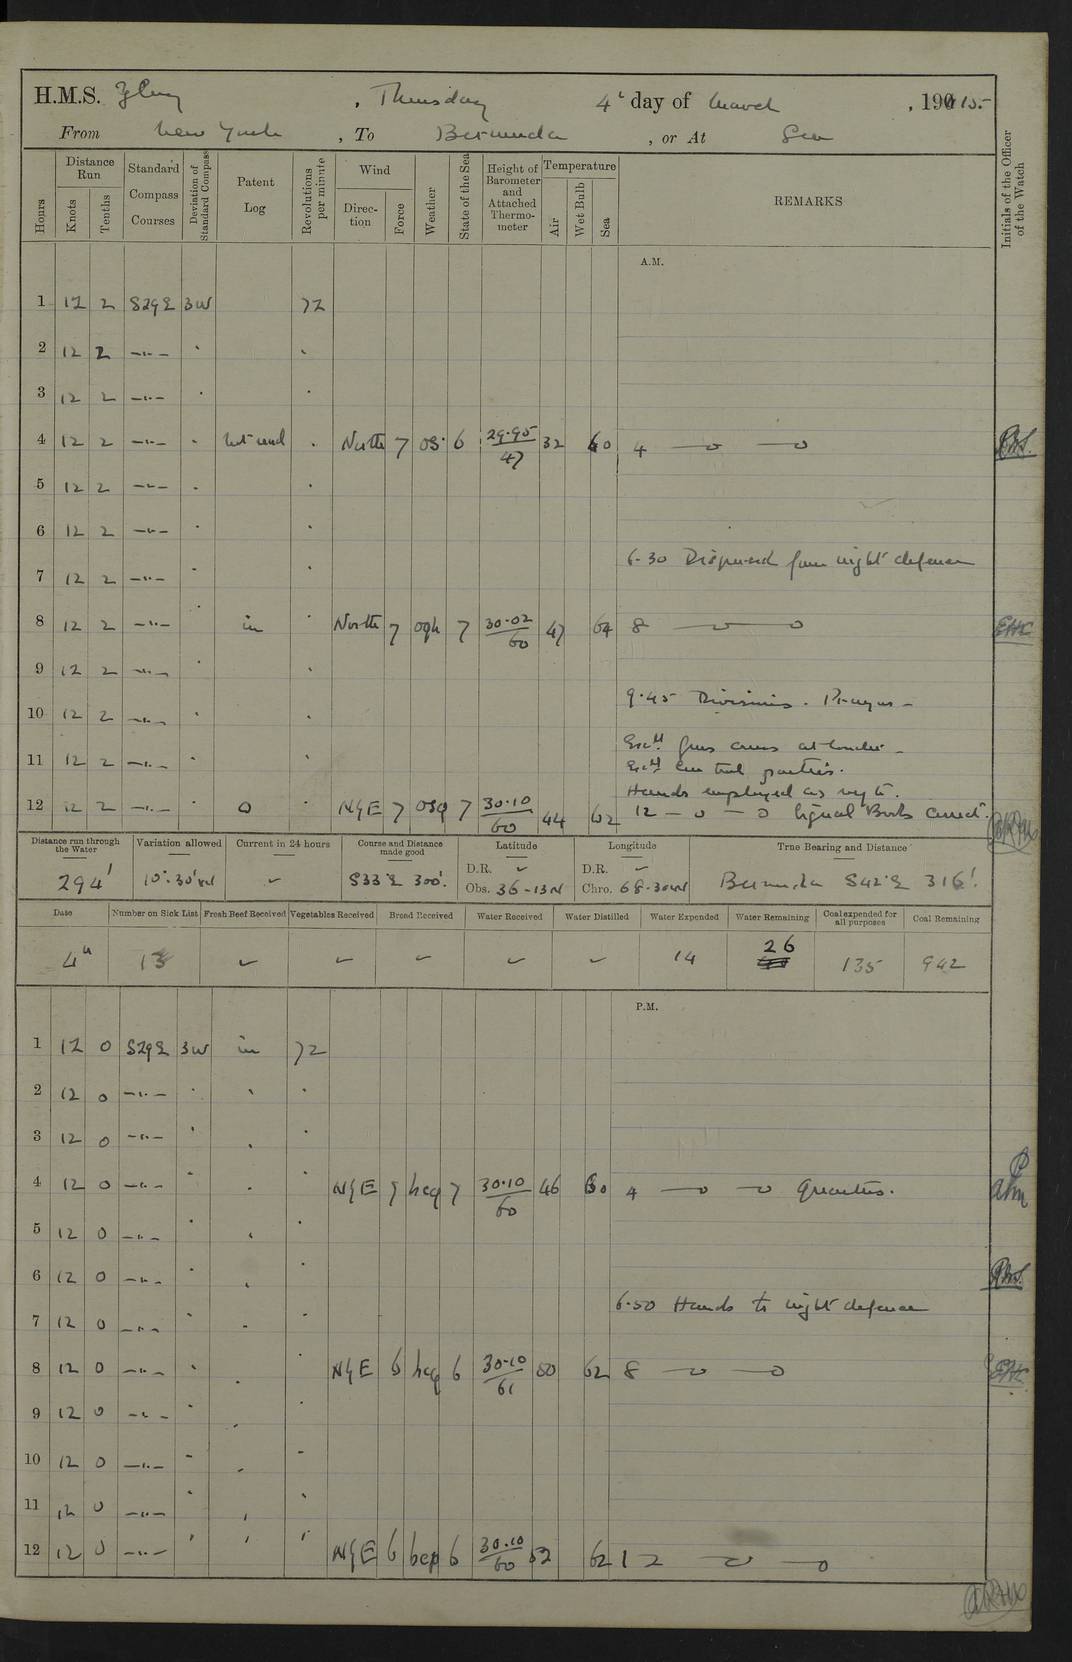 H.M.S. Glory, Thursday 4th day of March, 1915.
From New York, To Bermuda, or At Sea
Hours
Distance Run
Knots
Tenths
Standard Compass Courses
Deviation of Standard Compass
Patent Log
Revolutions per minute
Wind
Direction
Force
Weather
State of the Sea
Height of Barometer and Attached Thermometer
Temperature
Air
Wet Bulb
Sea
REMARKS
Initials of the Officer of the Watch
A.M.
1 12 2 S29E 3W 72
2 12 2 —"—
3 12 2 —"—
4 12 2 —"— North 7 os 6 29.95/47 32 60 4 — o — o
5 12 2 —"—
6 12 2 —"—
6.30 Dispersed from night defence
7 12 2 —"—
8 12 2 —"— in North 7 oqh 7 30.02/60 47 64 8 — o — o
9 12 2 —"—
9.45 Divisions. Prayers —
10 12 2 —"—
Exd. guns crews at loader —
11 12 2 —"—
Exd. control parties.
Hands employed as reqte.
12 12 2 —"— 0 NEE 7 osq 7 30.10/60 44 62 12 — o — o Signal Books correct.
Distance run through the Water
294'
Variation allowed
10°.30'W
Current in 24 hours
✓
Course and Distance made good
S33°E 300'.
Latitude
D.R. ✓
Obs. 36-13N
Longitude
D.R. ✓
Chro. 68.30W
True Bearing and Distance
Bermuda S42°E 316'.
Date
Number on Sick List
Fresh Beef Received
Vegetables Received
Bread Received
Water Received
Water Distilled
Water Expended
Water Remaining
Coal expended for all purposes
Coal Remaining
4th 13 ✓ ✓ ✓ ✓ ✓ 14 26 135 942
P.M.
1 12 0 S29E 3W in 72
2 12 0 —"—
3 12 0 —"—
4 12 0 —"— NEE 7 bcq 7 30.10/60 46 60 4 — o — o Quarters.
5 12 0 —"—
6 12 0 —"—
6.50 Hands to night defence
7 12 0 —"—
8 12 0 —"— NEE 6 bcq 6 30.10/61 60 62 8 — o — o
9 12 0 —"—
10 12 0 —"—
11 12 0 —"—
12 12 0 —"— NEE 6 bcp 6 30.10/60 52 62 12 — o — o